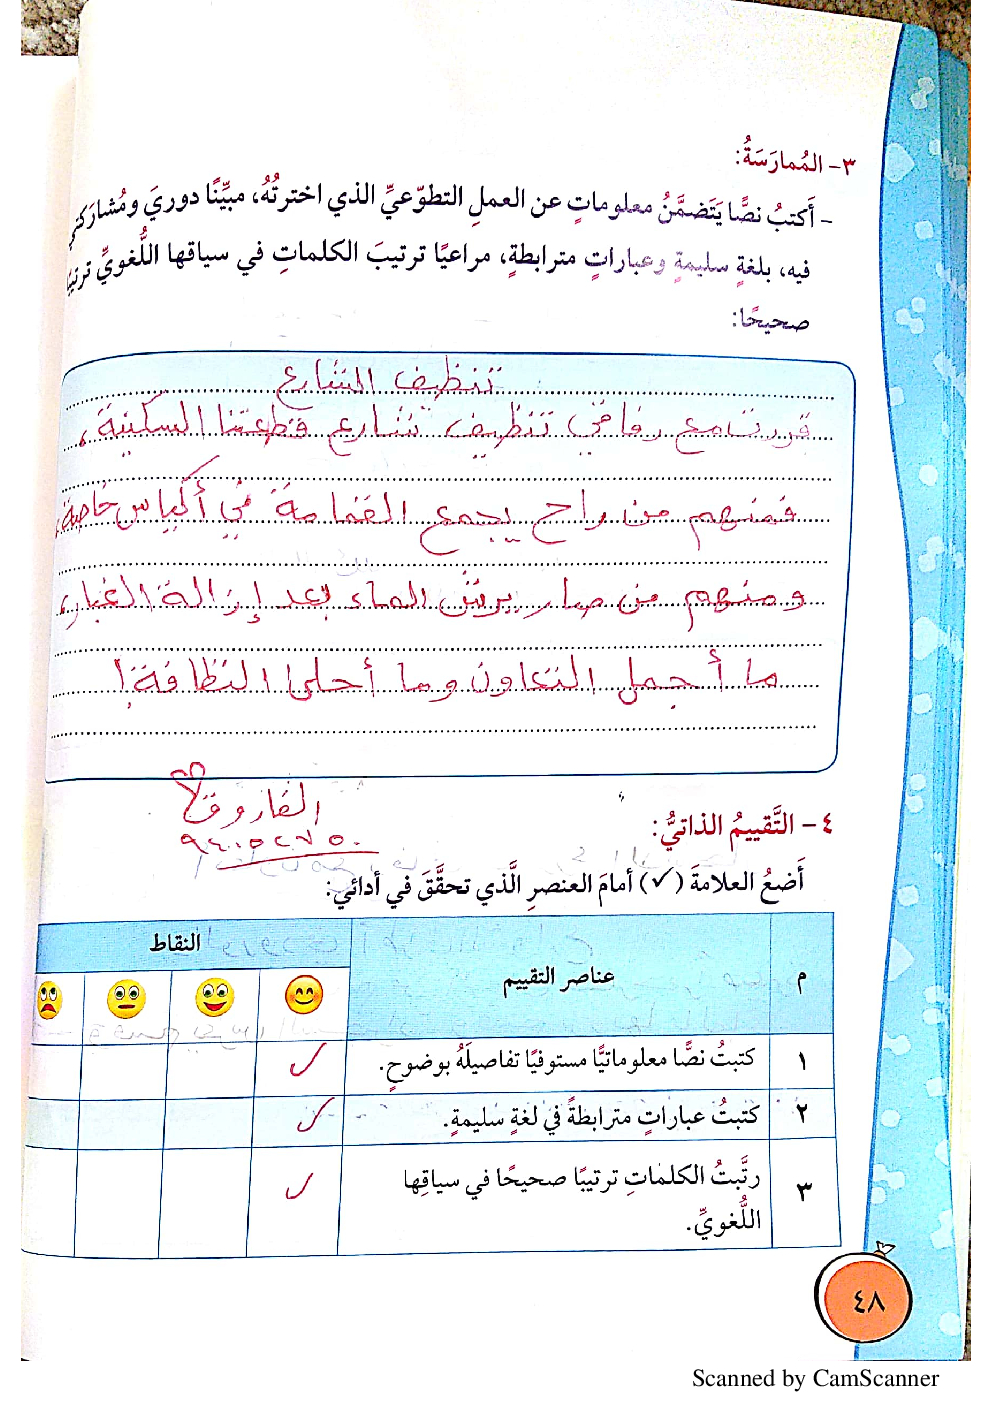 ٣- المُمارَسَةُ:
- أَكتبُ نصًّا يَتَضمَّنُ معلوماتٍ عن العملِ التطوّعيِّ الذي اخترتُهُ، مبيِّنًا دوريَ ومُشاركتي
فيه، بلغةٍ سليمةٍ وعباراتٍ مترابطةٍ، مراعيًا ترتيبَ الكلماتِ في سياقها اللُّغويِّ ترتيبًا
صحيحًا:
تنظيف الشارع
قررت مع رفاقي تنظيف شارع قطعتنا السكنية،
فمنهم من راح يجمع القمامة في أكياس خاصة،
ومنهم من صار يرش الماء بعد إزالة الغبار،
ما أجمل التعاون وما أحلى النظافة!
الفاروق
٩٤٠٠٥٢٧٥٠
٤- التَّقييمُ الذاتيُّ:
أَضعُ العلامةَ (✓) أمامَ العنصرِ الَّذي تحقَّقَ في أدائي:
م عناصر التقييم النقاط
١ كتبتُ نصًّا معلوماتيًّا مستوفيًا تفاصيلَهُ بوضوحٍ. ✓
٢ كتبتُ عباراتٍ مترابطةً في لغةٍ سليمةٍ. ✓
٣ رتَّبتُ الكلماتِ ترتيبًا صحيحًا في سياقِها ✓
اللُّغويِّ.
٤٨
Scanned by CamScanner